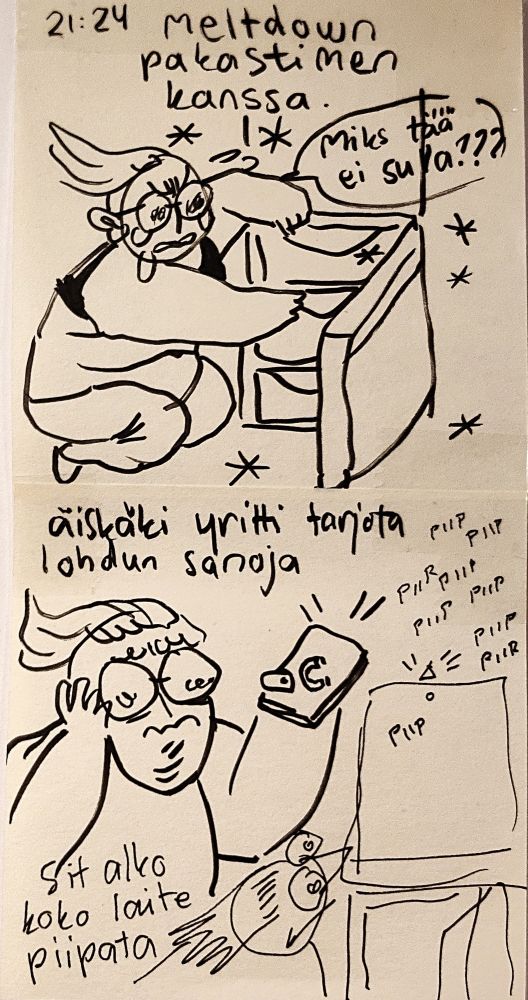 21:24 Meltdown
pakastimen
kanssa.
Miks tää
ei sula???
äiskäki yritti tarjota
lohdun sanoja
PIIP PIIP
PIIP PIIP
PIIP PIIP
PIIP
PIIP
PIIP
Sit alko
koko laite
piipata